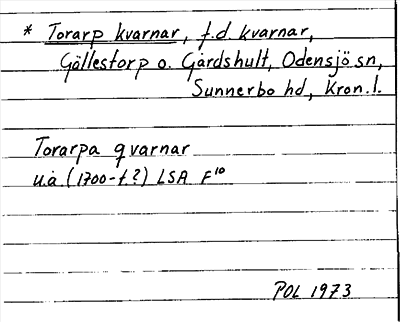 * Torarp kvarnar, f.d. kvarnar,
Göllestorp o. Gårdshult, Odensjö sn,
Sunnerbo hd, Kron. l.
Torarpa qvarnar
u.å. (1700-t.?) LSA F¹⁰
POL 1973